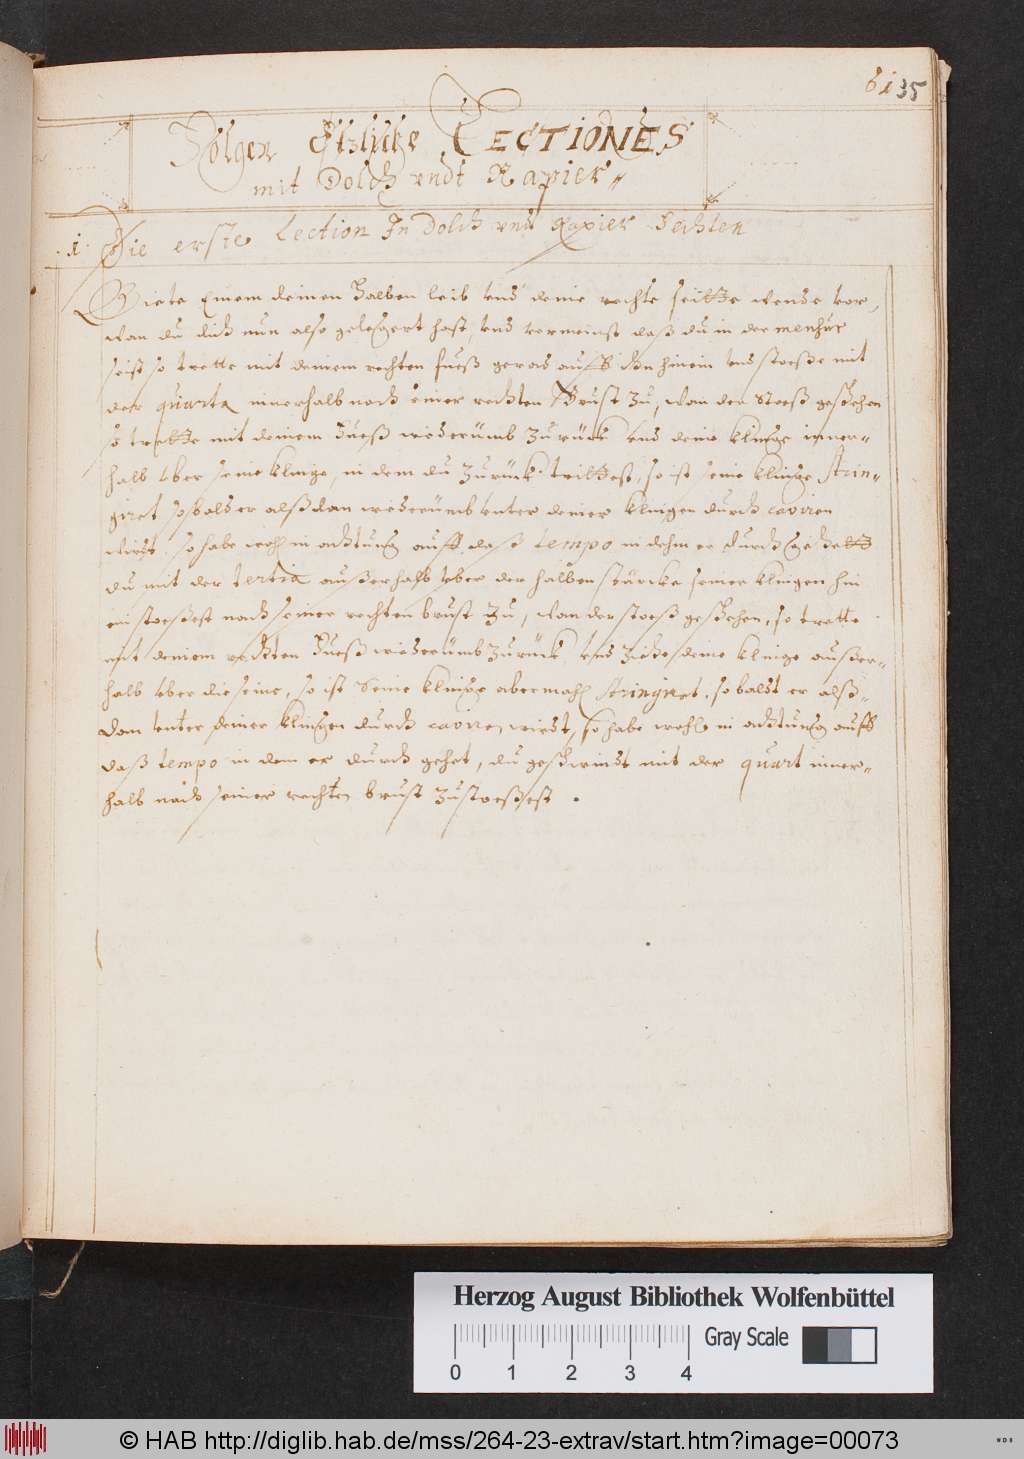 61 35
Folgen Etzliche LECTIONES
mit Dolch undt Rapier
1. Die erste Lection In Dolch und Rapier Fechten
Biete Einem deinen halben leib und deine rechte seitte wende vor,
wan du dich nun also gelegert hast, und vermeinst daß du in der menhur
seist so trette mit deinem rechten fueß gerad auff ihn hinein und stoeße mit
der quarta innerhalb nach einer rechten Brust zu, wan der Stoeß geschehen
so trette mit deinem Fueß wiederumb zu rück und deine klinge inner=
halb uber seine klinge, in dem du zurück trittest, so ist seine klinge strin=
giret so bald er alßdan wiederumb unter deiner klingen durch caviren
wirdt, so habe wohl in achtung auff daß tempo in dehm er durch gehett
du mit der tertia außerhalb uber der halben stärcke seiner klingen hin
ein stoeßest nach seiner rechten brust zu, wan der stoeß geschehen, so trette
mit deinem rechten Fueß wiederumb zurück und ziehe deine klinge außer=
halb uber die seine, so ist Seine klinge abermahl stringirt, so baldt er alß=
dan unter deiner klingen durch caviren wirdt, so habe wohl in achtung auff
daß tempo in dem er durch gehet, du geschwindt mit der quart inner=
halb nach seiner rechten brust zustoeßest.
Herzog August Bibliothek Wolfenbüttel
Gray Scale
0 1 2 3 4
© HAB http://diglib.hab.de/mss/264-23-extrav/start.htm?image=00073